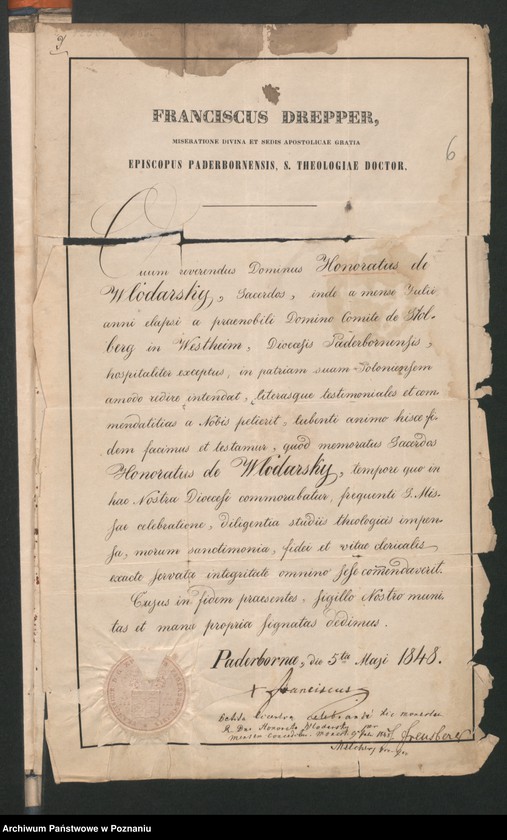 9
FRANCISCUS DREPPER,
MISERATIONE DIVINA ET SEDIS APOSTOLICAE GRATIA
EPISCOPUS PADERBORNENSIS, S. THEOLOGIAE DOCTOR.
6
Quum reverendus Dominus Honoratus de
Wlodarsky, Sacerdos, inde a mense Julio
anni elapsi a praenobili Domino Comite de Stol-
berg in Westheim, Dioecesis Paderbornensis,
hospitaliter exceptus, in patriam suam Poloniensem
amodo redire intendat, literasque testimoniales et com-
mendatitias a Nobis petierit, lubenti animo hisce fi-
dem facimus et testamur, quod memoratus Sacerdos
Honoratus de Wlodarsky, tempore quo in
hac Nostra Dioecesi commorabatur, frequenti S. Mis-
sae celebratione, diligentia studiis theologicis impen-
sa, morum sanctimonia, fidei et vitae clericalis
exacte servatae integritate omnino sese comendaverit.
Cujus in fidem praesentes, Sigillo Nostro muni-
tas et manu propria signatas dedimus.
Paderbornae, die 5ta Maji 1848.
+ Franciscus
celebrandi
R. Dno Honorato Wlodarsky per
Freusberg
Archiwum Państwowe w Poznaniu